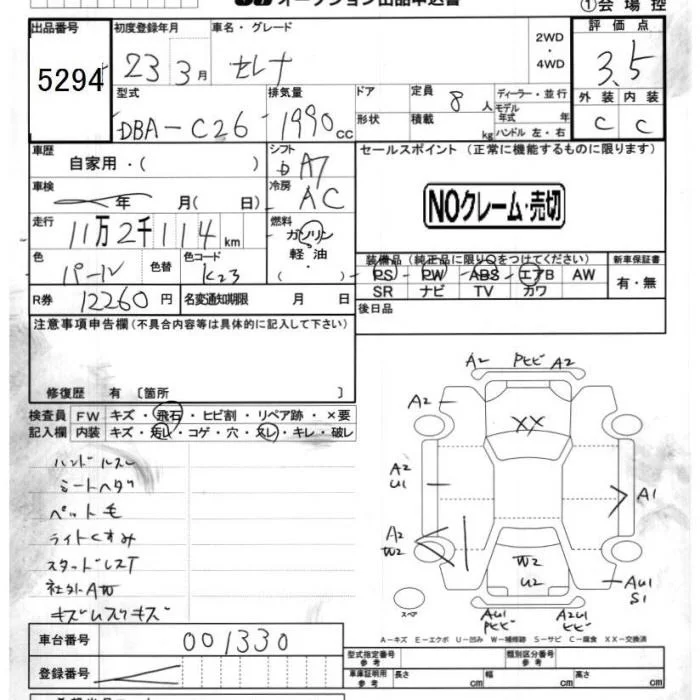 オークション出品申込書 ①会場控
出品番号 初度登録年月 車名・グレード 評価点
5294 23 3月 セレナ 2WD・4WD 3.5
型式 排気量 ドア 定員 ディーラー・並行 外装 内装
DBA-C26 1990cc 形状 積載 8人 kg モデル年式 年 ハンドル 左・右 C C
車歴 シフト セールスポイント (正常に機能するものに限ります)
自家用・( ) A7
車検 年 月( 日) 冷房 AC
NOクレーム・売切
走行 11万2千114km 燃料 ガソリン・軽油・( )
色 パール 色替 色コード K23
装備品(純正品に限り○をつけてください) 新車保証書
PS PW ABS エアB AW 有・無
SR ナビ TV カワ
R券 12260円 名変通知期限 月 日 後日品
注意事項申告欄(不具合内容等は具体的に記入して下さい)
修復歴 有 [箇所 ]
検査員 FW キズ・飛石・ヒビ割・リペア跡・×要
記入欄 内装 キズ・汚レ・コゲ・穴・スレ・キレ・破レ
ハンドルスレ
シートヘタ
ペット毛
ライトくすみ
スタッドレスT
社外AW
A2 Pヒビ A2
A2
XX
A2
U1
A1
A2
W2
W2
U2
AU1
S1
AU1
Pヒビ
A2U1
ヒビ
スペア
A-キズ E-エクボ U-凹み W-補修跡 S-サビ C-腐食 XX-交換済
車台番号 001330
登録番号
型式指定番号 参考 類別区分番号 参考
車庫証明用 参考 長さ cm 幅 cm 高さ cm